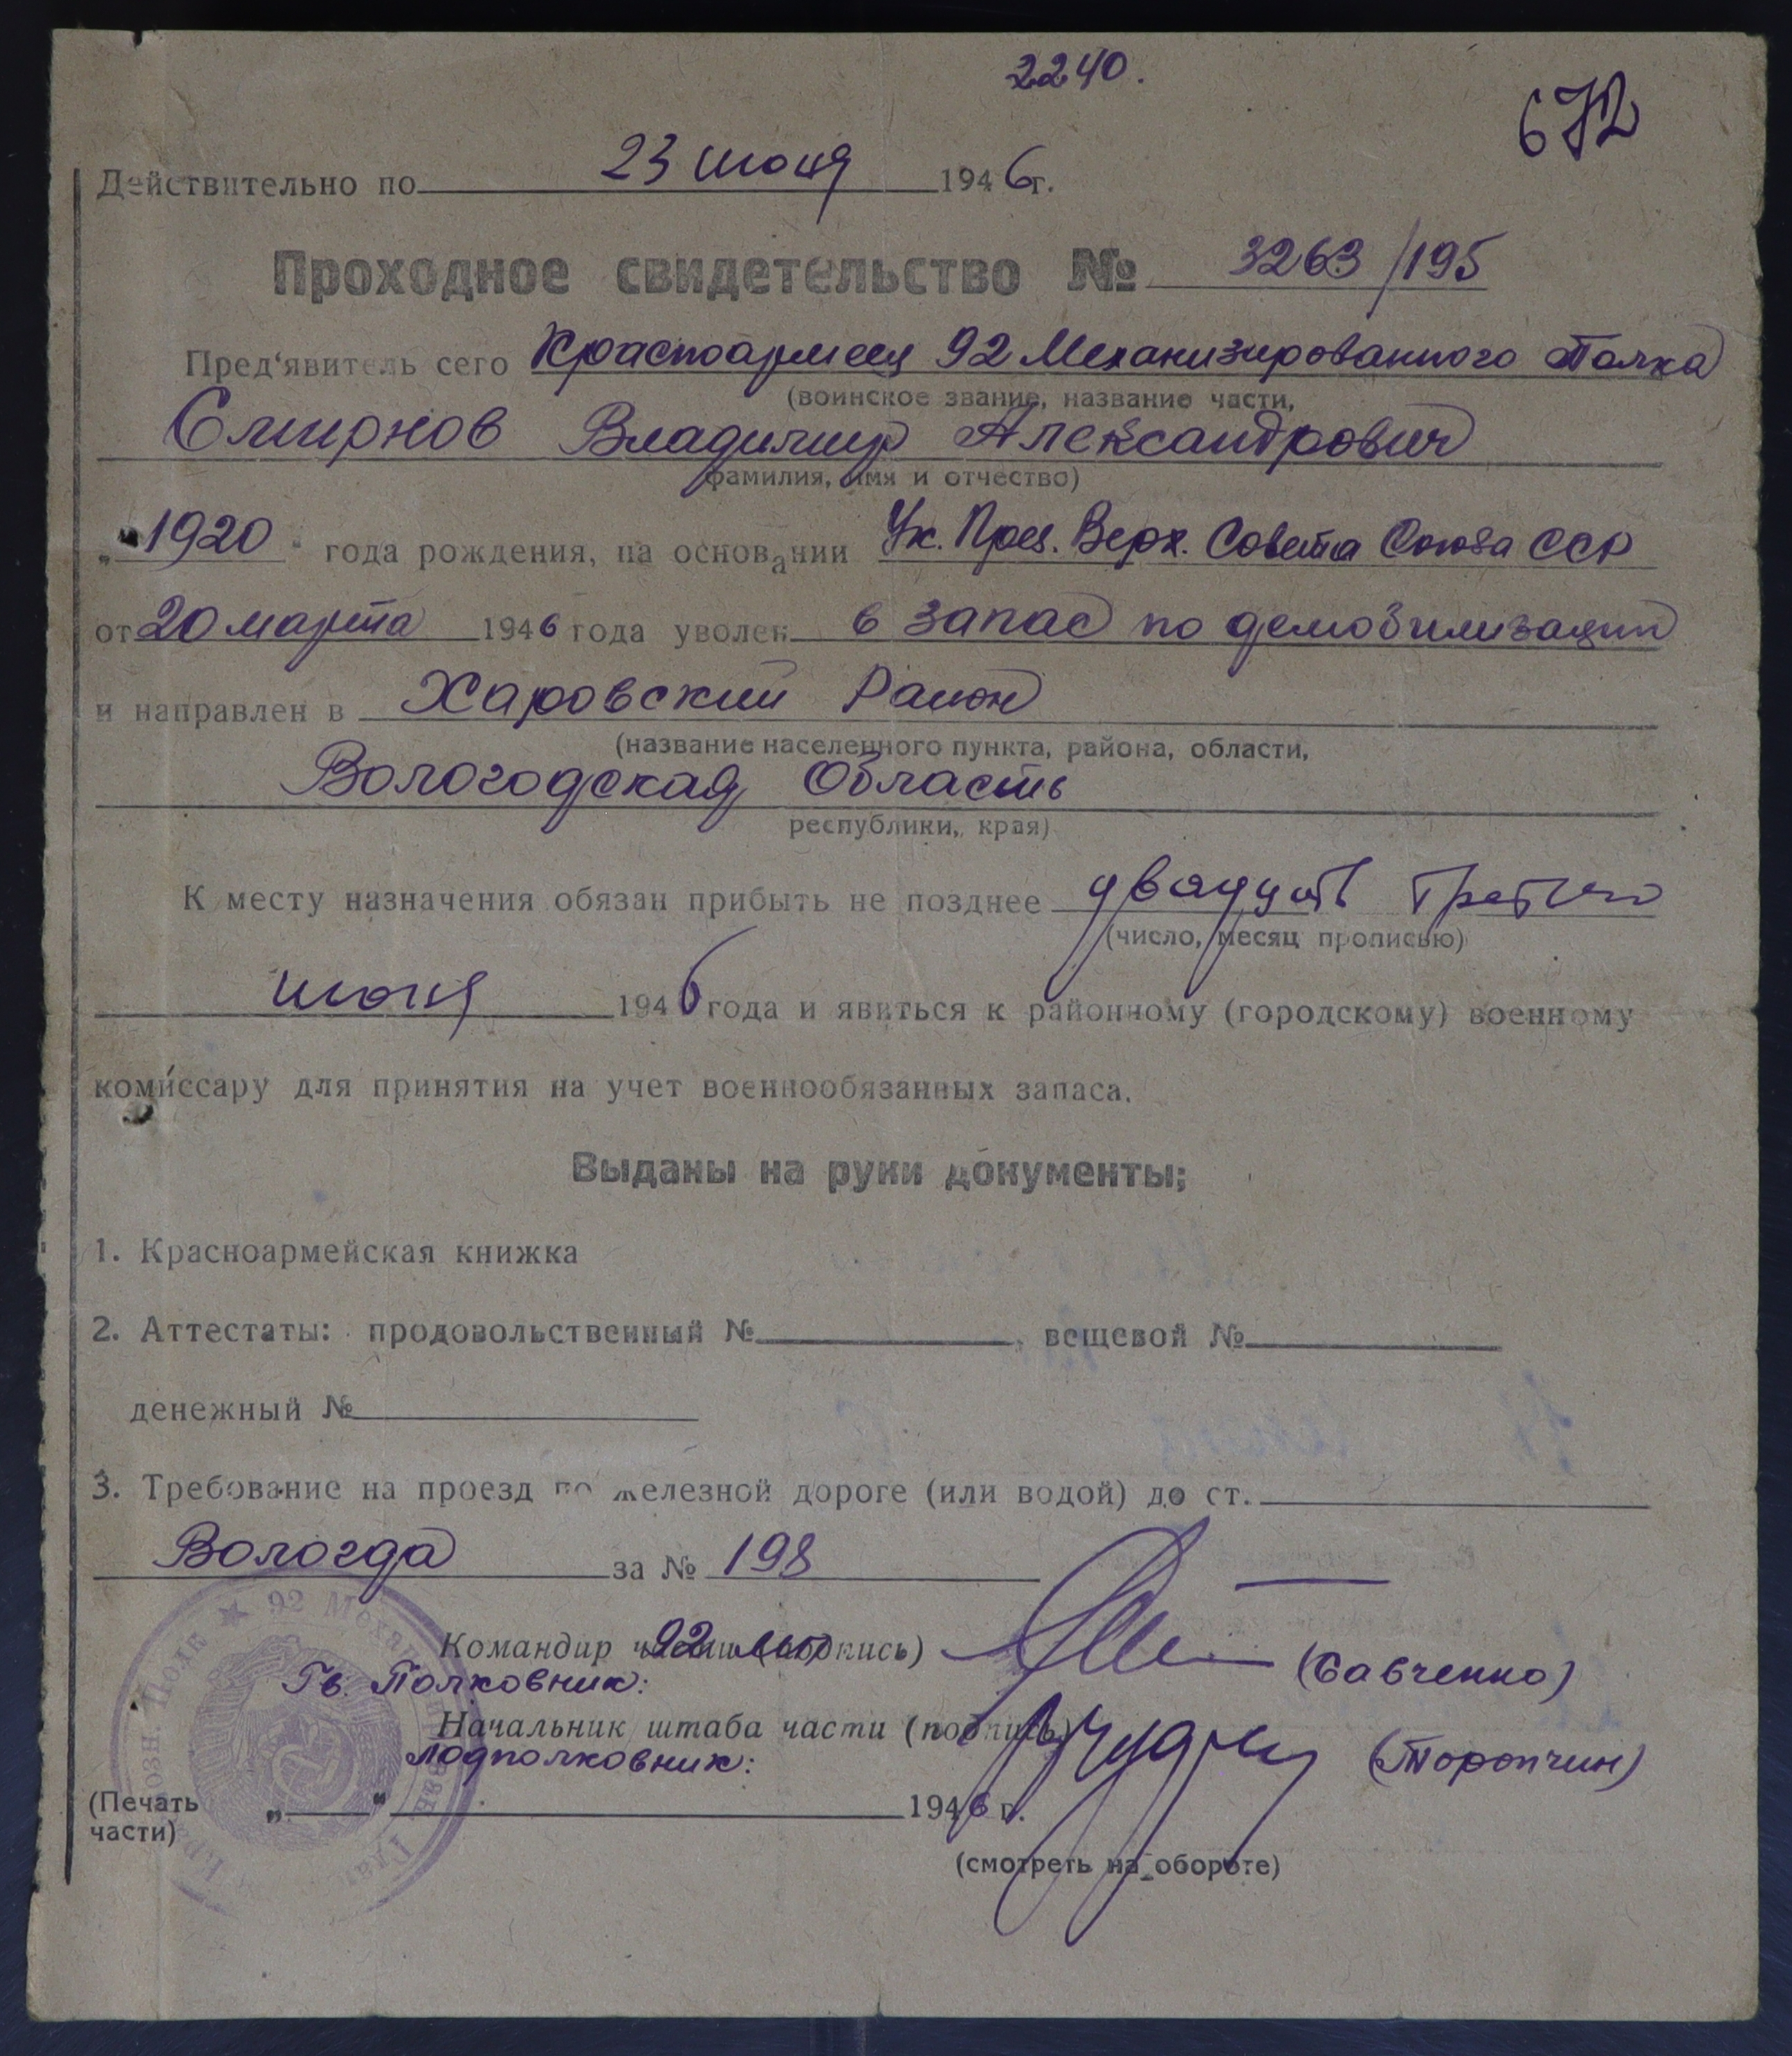 2240.
672
Действительно по 23 июня 1946 г.
Проходное свидетельство № 3263/195
Пред'явитель сего Красноармеец 92 Механизированного Полка
(воинское звание, название части,
Смирнов Владимир Александрович
фамилия, имя и отчество)
„1920" года рождения, на основании Ук. През. Верх. Совета Союза ССР
от 20 марта 1946 года уволен в запас по демобилизации
и направлен в Харовский Район
(название населенного пункта, района, области,
Вологодская Область
республики, края)
К месту назначения обязан прибыть не позднее двадцать третьего
(число, месяц прописью)
июня 1946 года и явиться к районному (городскому) военному
комиссару для принятия на учет военнообязанных запаса.
Выданы на руки документы;
1. Красноармейская книжка
2. Аттестаты: продовольственный № , вещевой №
денежный №
3. Требование на проезд по железной дороге (или водой) до ст.
Вологда за № 198
Командир части 92 мп (подпись) (Савченко)
Гв. Полковник:
Начальник штаба части (подпись) (Торопчин)
Подполковник:
(Печать части) „ " 1946 г.
(смотреть на обороте)
92 Механ Полк